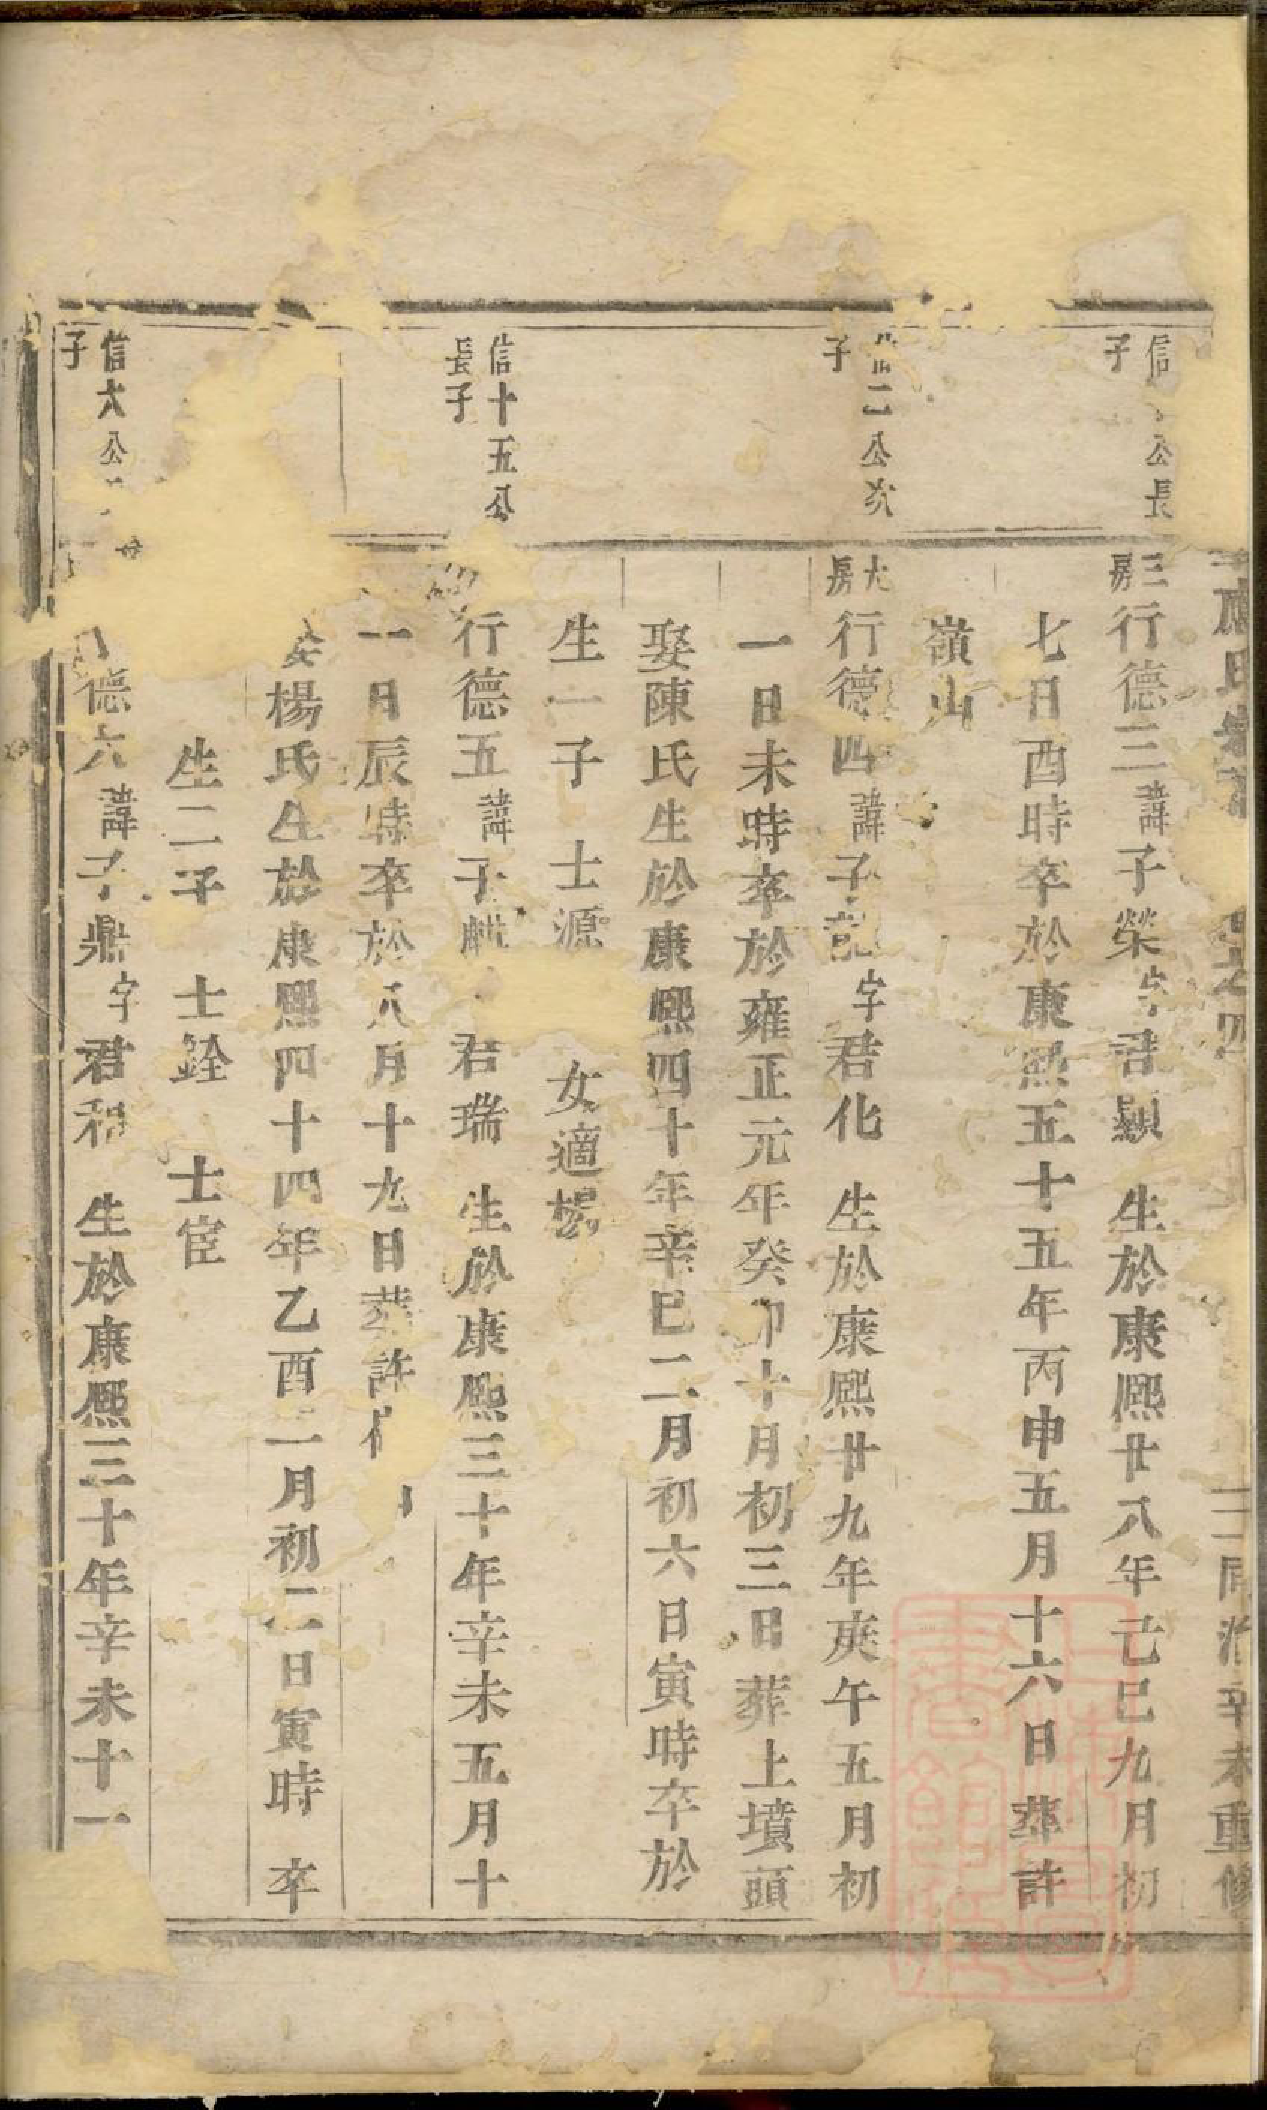 應氏
四
同治辛未重修
信公長子
三房行德三諱子榮字君顯 生於康熙廿八年己巳九月初
七日酉時卒於康熙五十五年丙申五月十六日葬許
嶺山
信二公次子
大房行德四諱子字君化 生於康熙廿九年庚午五月初
一日未時卒於雍正元年癸卯十月初三日葬上墳頭
娶陳氏生於康熙四十年辛巳二月初六日寅時卒於
生一子 士源 女適楊
信十五公長子
行德五諱子君瑞 生於康熙三十年辛未五月十
一日辰時卒於八月十九日葬許
楊氏生於康熙四十四年乙酉二月初二日寅時 卒
生二子 士銓 士宦
信六公子
德六諱子鼎字君和 生於康熙三十年辛未十一